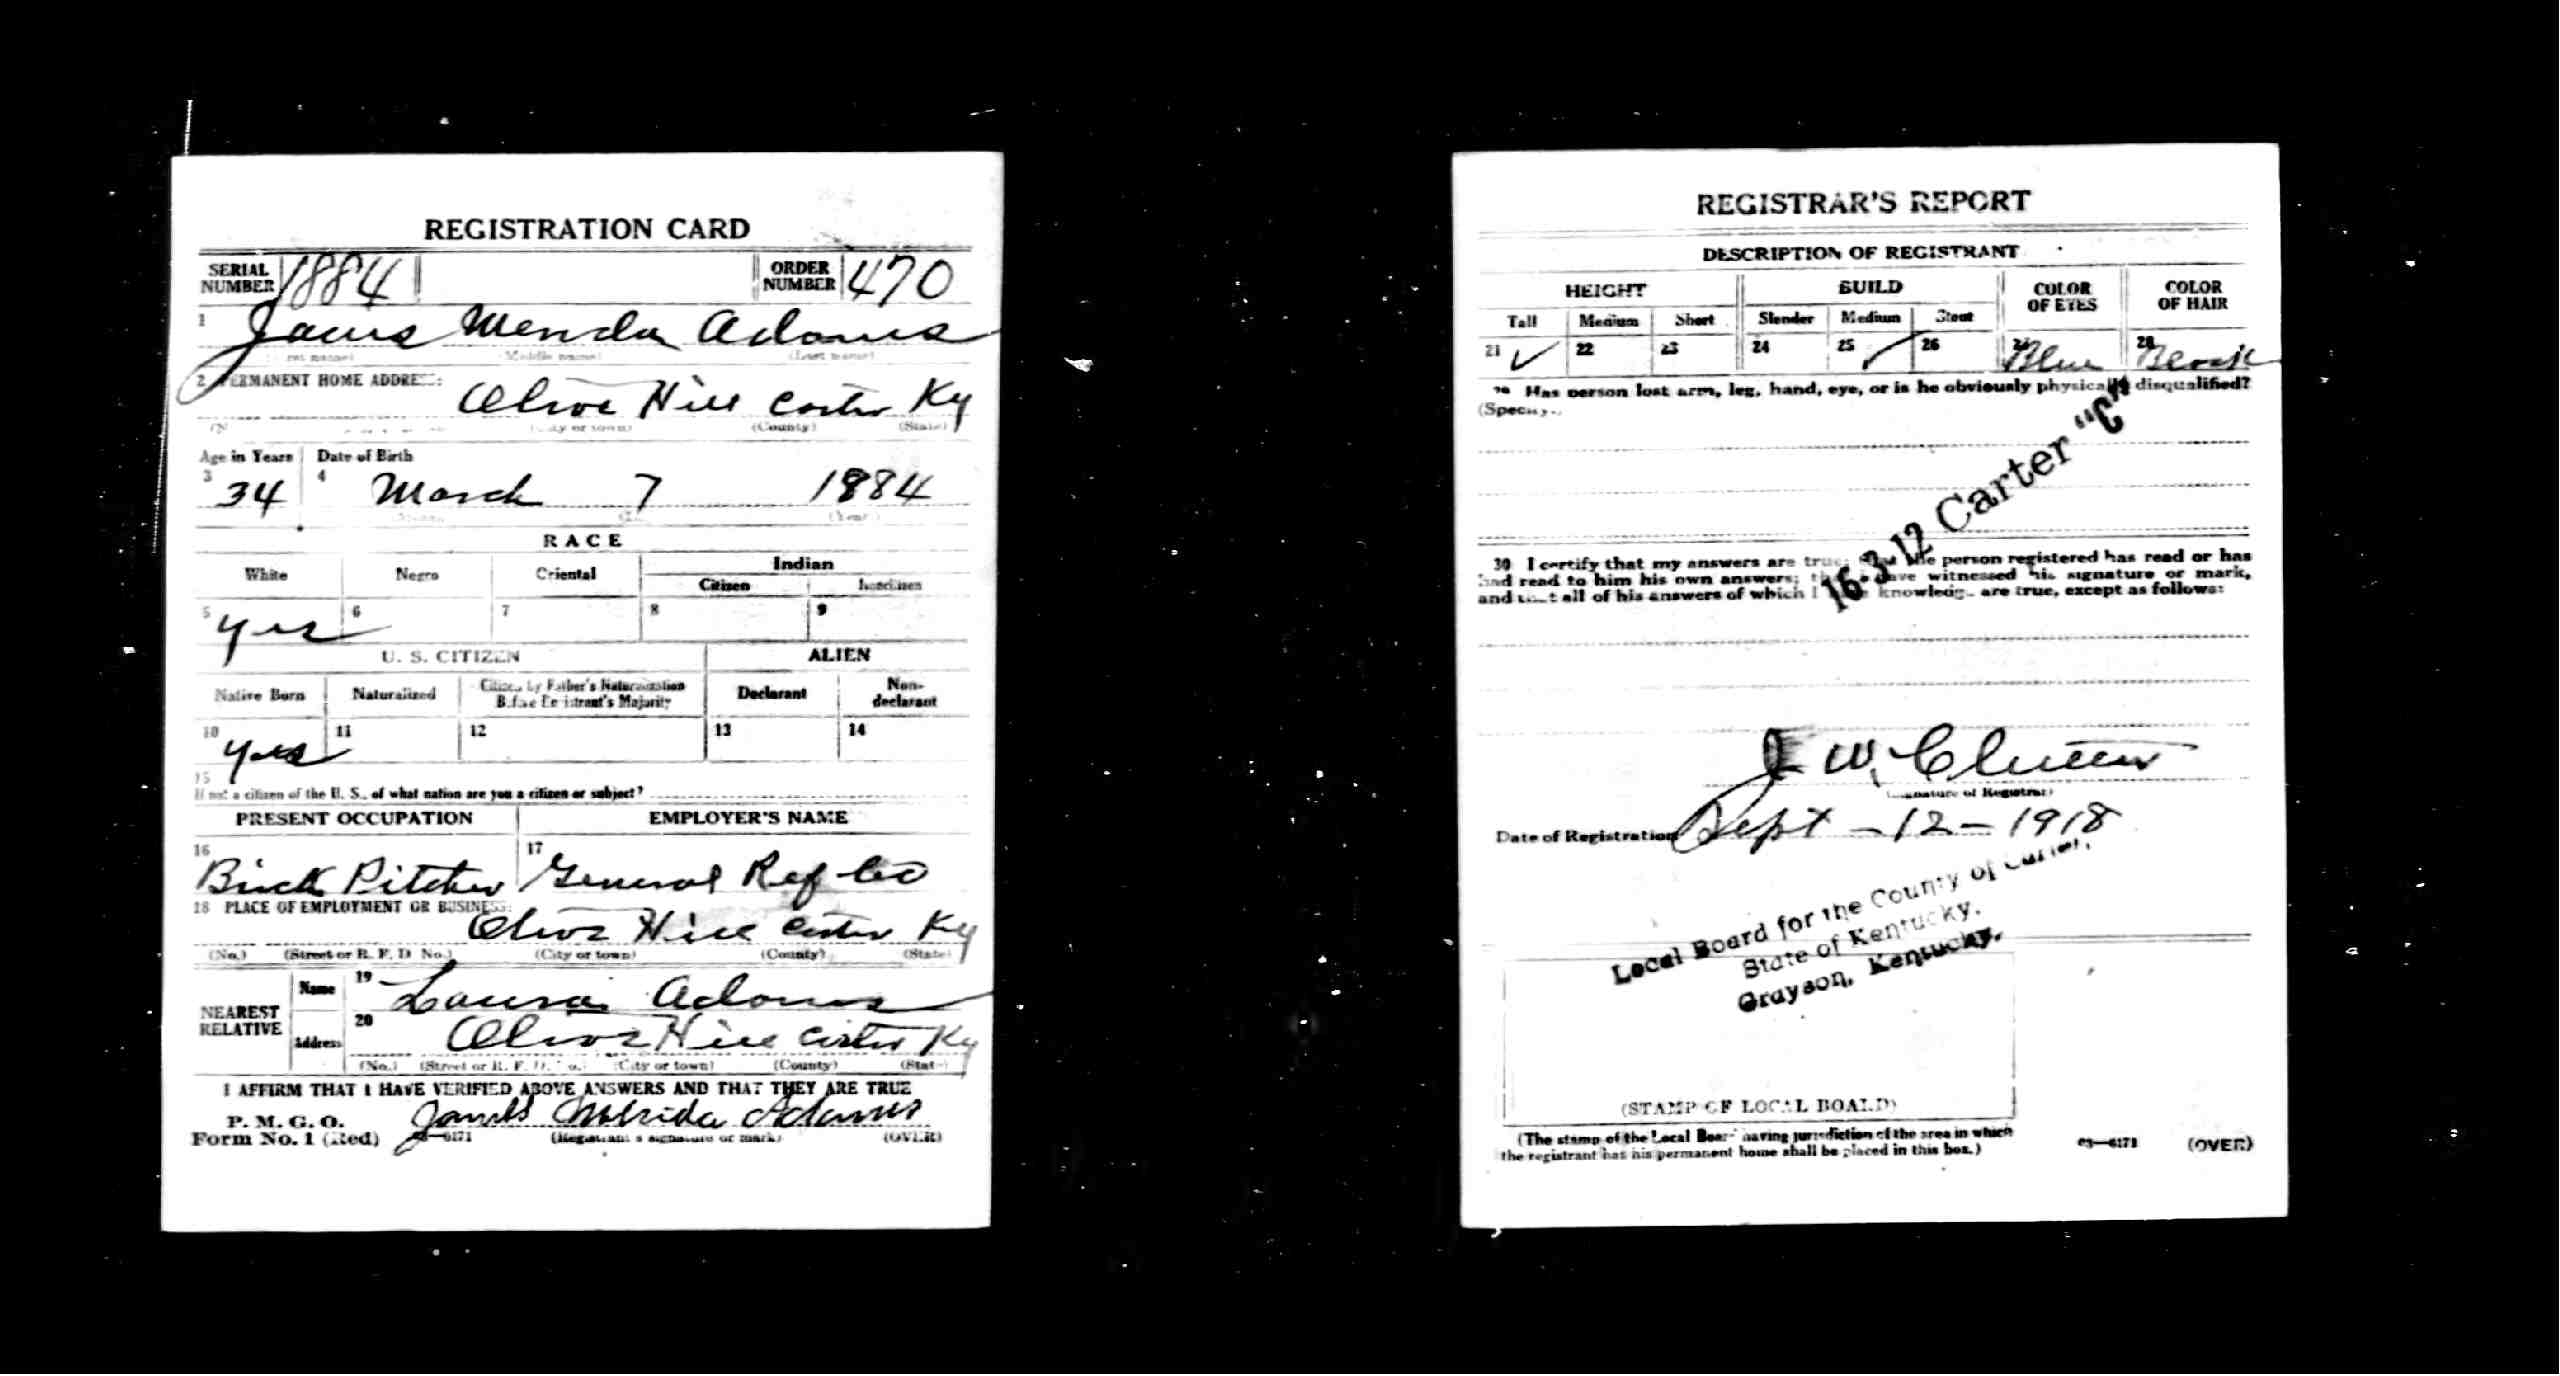 REGISTRATION CARD
SERIAL NUMBER 1884 ORDER NUMBER 470
1 James Merida Adams
(Middle name) (Last name)
2 PERMANENT HOME ADDRESS:
Olive Hill Carter Ky
(City or town) (County) (State)
Age in Years Date of Birth
3 34 4 March 7 1884
(Year)
RACE
White Negro Oriental Indian
Citizen Noncitizen
5 yes 6 7 8 9
U. S. CITIZEN ALIEN
Native Born Naturalized Citizen by Father's Naturalization Before Registrant's Majority Declarant Non-declarant
10 yes 11 12 13 14
15
If not a citizen of the U. S., of what nation are you a citizen or subject?
PRESENT OCCUPATION EMPLOYER'S NAME
16 Brick Pitcher 17 General Ref Co
18 PLACE OF EMPLOYMENT OR BUSINESS:
Olive Hill Carter Ky
(No.) (Street or R. F. D. No.) (City or town) (County) (State)
NEAREST RELATIVE Name 19 Laura Adams
Address 20 Olive Hill Carter Ky
(No.) (Street or R. F. D. No.) (City or town) (County) (State)
I AFFIRM THAT I HAVE VERIFIED ABOVE ANSWERS AND THAT THEY ARE TRUE
P. M. G. O.
Form No. 1 (Red) James Merida Adams
03—6171 (Registrant's signature or mark) (OVER)
REGISTRAR'S REPORT
DESCRIPTION OF REGISTRANT
HEIGHT BUILD COLOR OF EYES COLOR OF HAIR
Tall Medium Short Slender Medium Stout
21 ✓ 22 23 24 25 ✓ 26 27 Blue 28 Black
29 Has person lost arm, leg, hand, eye, or is he obviously physically disqualified?
(Specify.)
16-3-12 Carter "C"
30 I certify that my answers are true; that the person registered has read or has
had read to him his own answers; that I have witnessed his signature or mark,
and that all of his answers of which I have knowledge are true, except as follows:
J. W.
(Signature of Registrar)
Date of Registration Sept - 12 - 1918
Local Board for the County of Carter,
State of Kentucky.
Grayson, Kentucky.
(STAMP OF LOCAL BOARD)
(The stamp of the Local Board having jurisdiction of the area in which
the registrant has his permanent home shall be placed in this box.)
03—6171 (OVER)